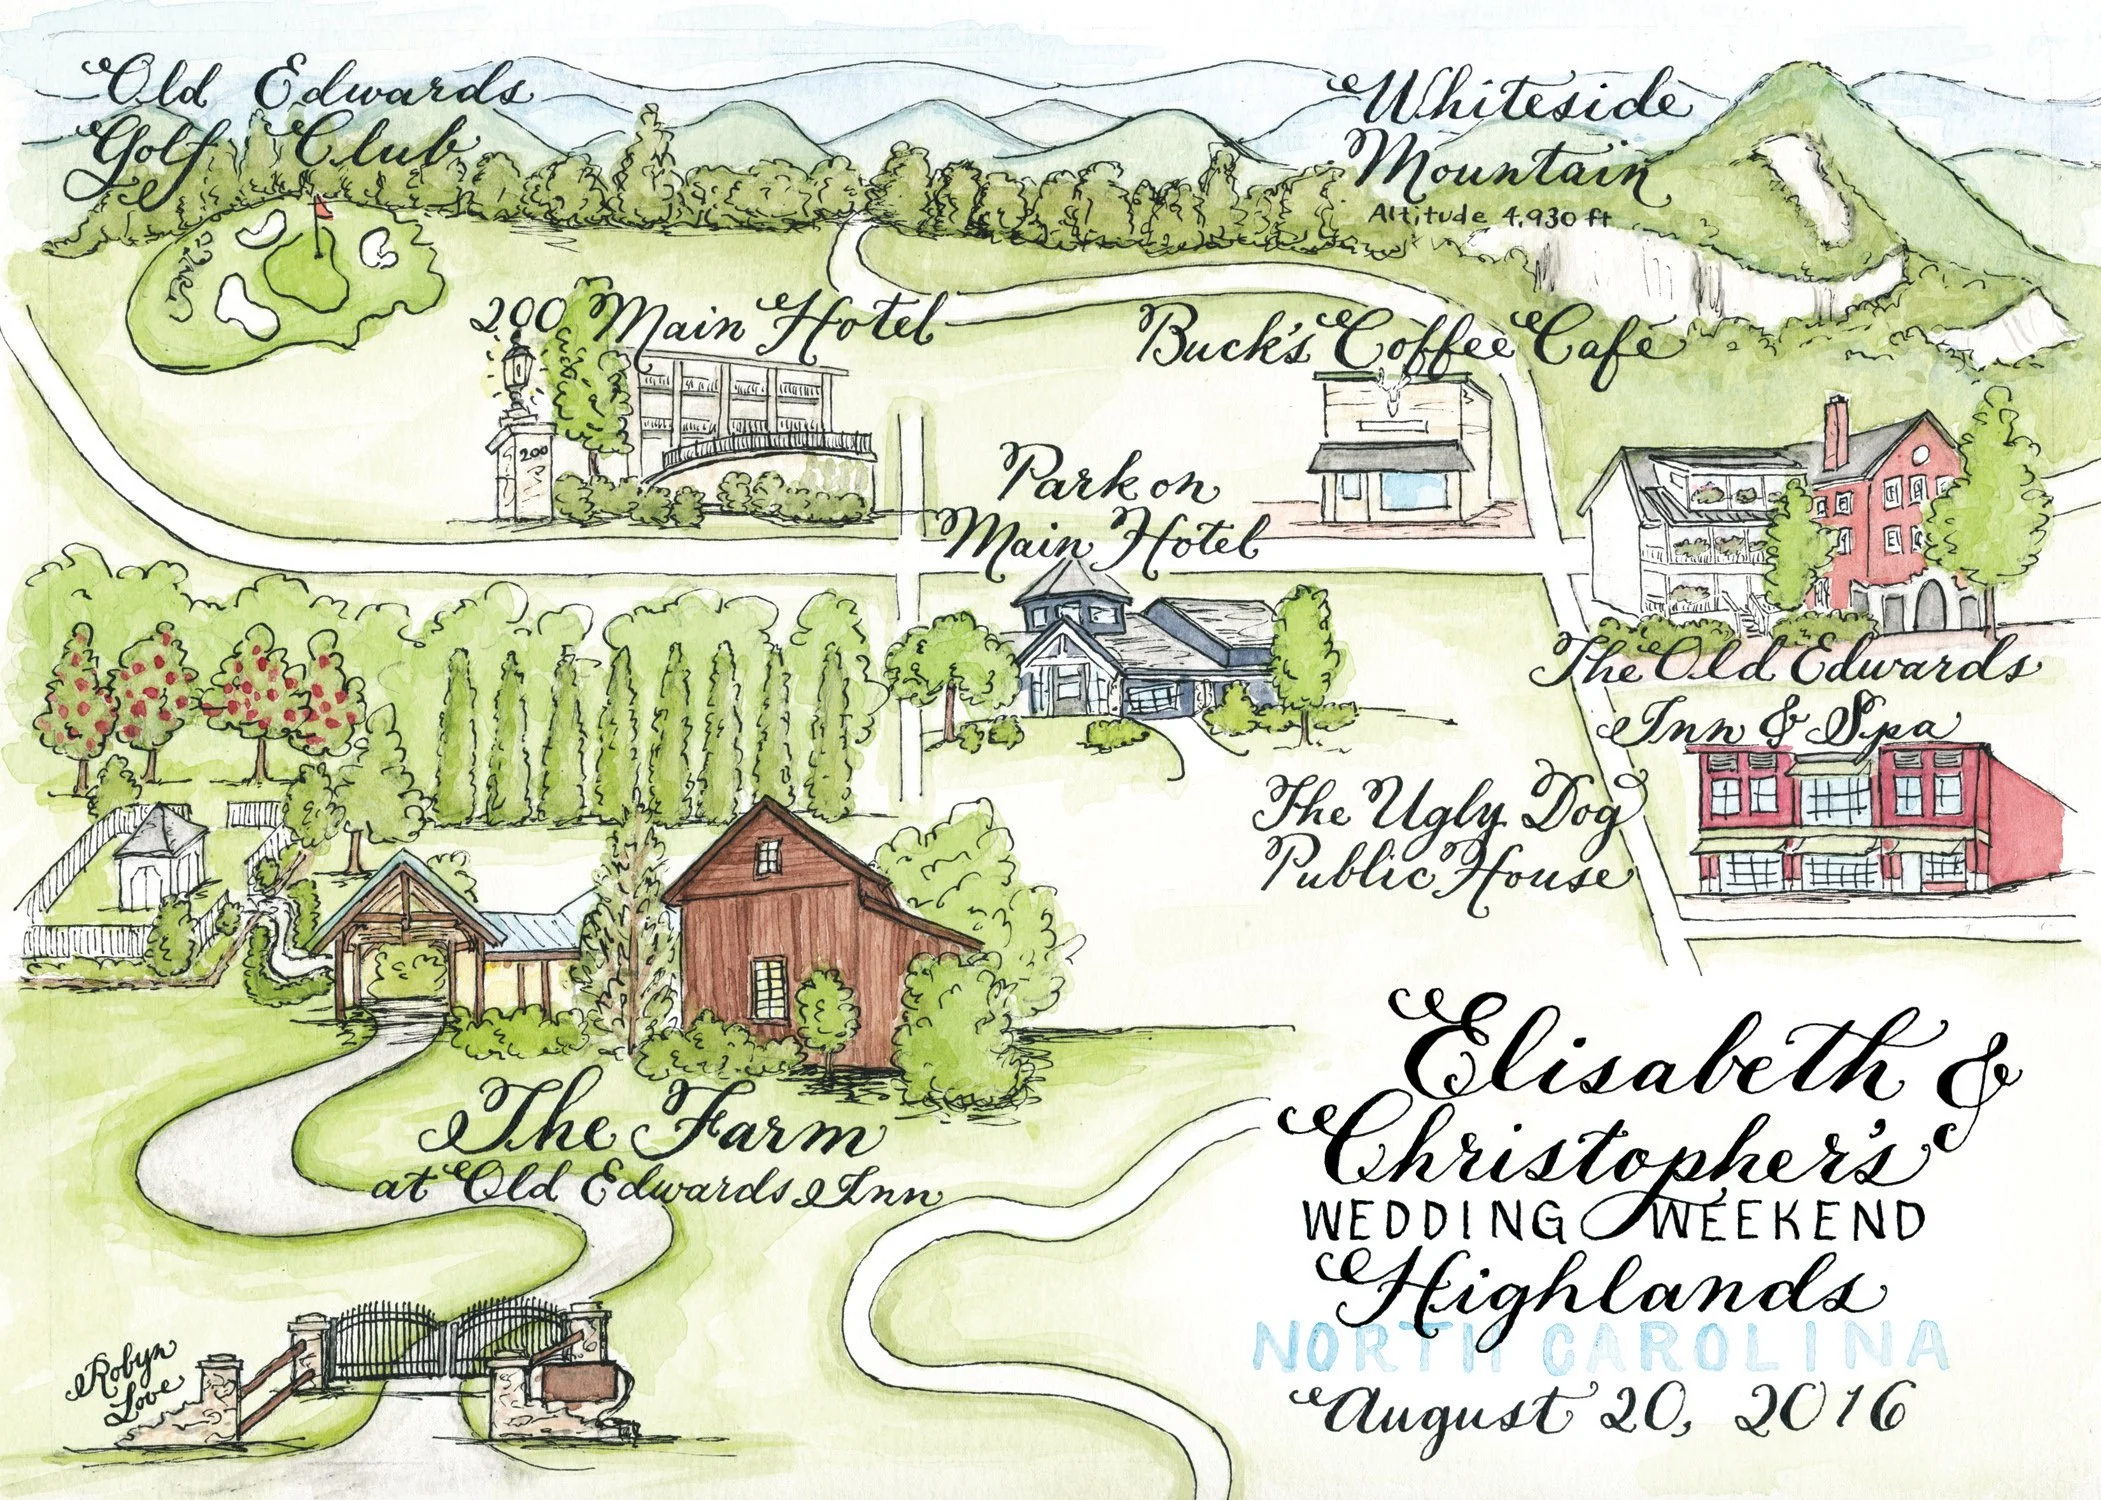 Old Edwards
Golf Club
Whiteside
Mountain
Altitude 4,930 ft
200 Main Hotel
Buck's Coffee Cafe
200
Park on
Main Hotel
The Old Edwards
Inn & Spa
The Ugly Dog
Public House
The Farm
at Old Edwards Inn
Elisabeth &
Christopher's
WEDDING WEEKEND
Highlands
NORTH CAROLINA
August 20, 2016
Robyn
Love